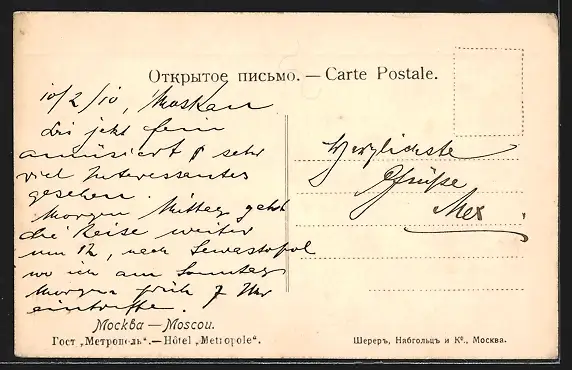 Открытое письмо. — Carte Postale.
10/2/10, Moskau
Bis jetzt fein
amüsiert & sehr
viel Interessantes
gesehen.
Morgen Mittag geht
die Reise weiter
um 12, nach Sewastopol
wo ich am Sonntag
Morgen früh 7 Uhr
eintreffe.
Herzlichste
Grüße
Max
Москва — Moscou.
Гост „Метрополь“. — Hôtel „Metropole“.
Шереръ, Набгольцъ и Кº., Москва.